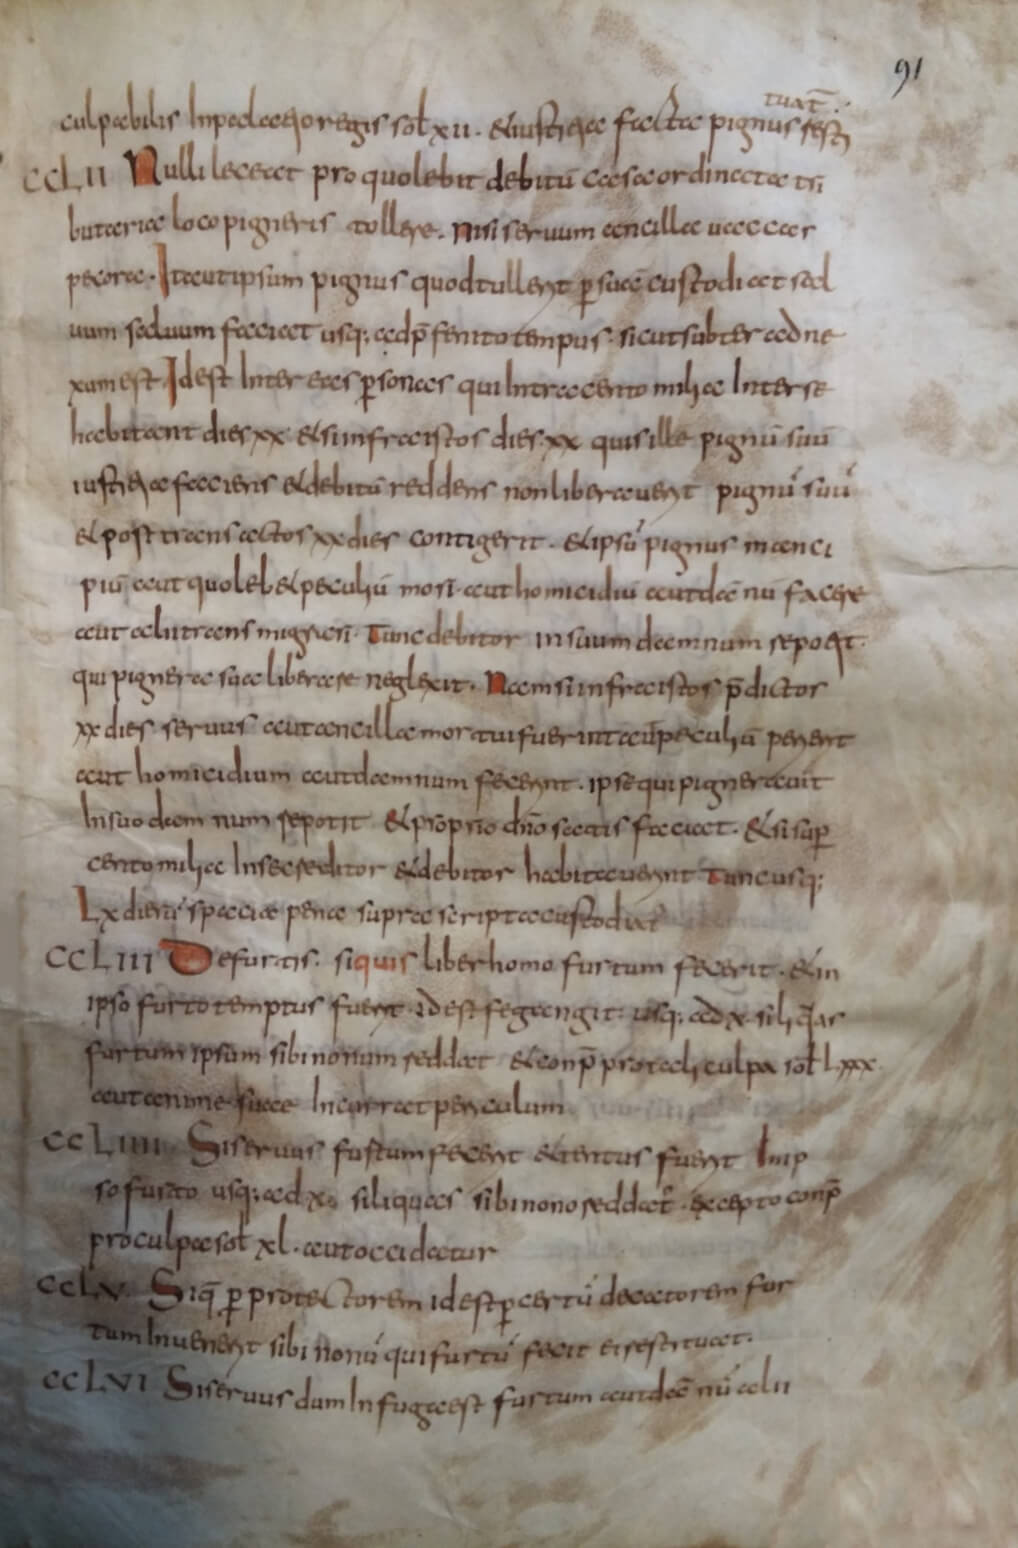 91
tuat̄
culpabilis Inpalatio regis sol̄ xii. & iustitia facta pignus resti
CCLII Nulli leceat pro quolebit debitū casa ordinata tri
butaria loco pigneris tollere. Nisi servum ancilla vaccas
pecora. Itaut ipsum pignus quod tullerit p̱ sua custodiat sal
vum salvum faciat usq; ad p̄fenito tempus. sicut subter adne
xum est Idest Inter eas p̱sonas qui Intra cento milia Inter se
habitant dies xx & si infra istos dies xx quis ille pignū suū
iustitia faciens & debitū reddens non liberaverit pignū suū
& post transactos xx dies contigerit. & ipsū pignus manci
piū aut quoleb& peculiū mori aut homicidiū aut dā nū facere
aut alii transmigrari. Tunc debitor in suum damnum repot&.
qui pignera sua liberare neglexit. Nam si infra istos p̄dictos
xx dies servus aut ancilla mortui fuerint aut peculiū perierit
aut homicidium aut damnum fecerint. ipse qui pigneravit
In suo dam num repotit & proprio dn̄o satis faciat. & si sup̱
cento milia Inse creditor & debitor habitaverint Tunc usq;
Lx dierū spacia pena supra scripta custodiat
CCLIII De furtis. si quis liber homo furtum fecerit. & in
ipso furto temptus fuerit. Idest fegangit. usq; ad x. siliquas
furtum ipsum sibi nonum reddat & conp̄ pro tali culpa sol̄ Lxxx
aut anime suae Incurrat periculum
CCLIIII Si servus furtum fecerit & tentus fuerit Inip
so furto usq; ad x. siliquas sibi nono reddat. excepto conp̄
pro culpa sol̄ xl. aut occidatur
CCLV Siq̄ p̱ protectorem idest p̱ certū decatorem fur
tum Invenerit sibi nonū qui furtū fecit ei restituat.
CCLVI Si servus dum In fuga est furtum aut dā nū alii